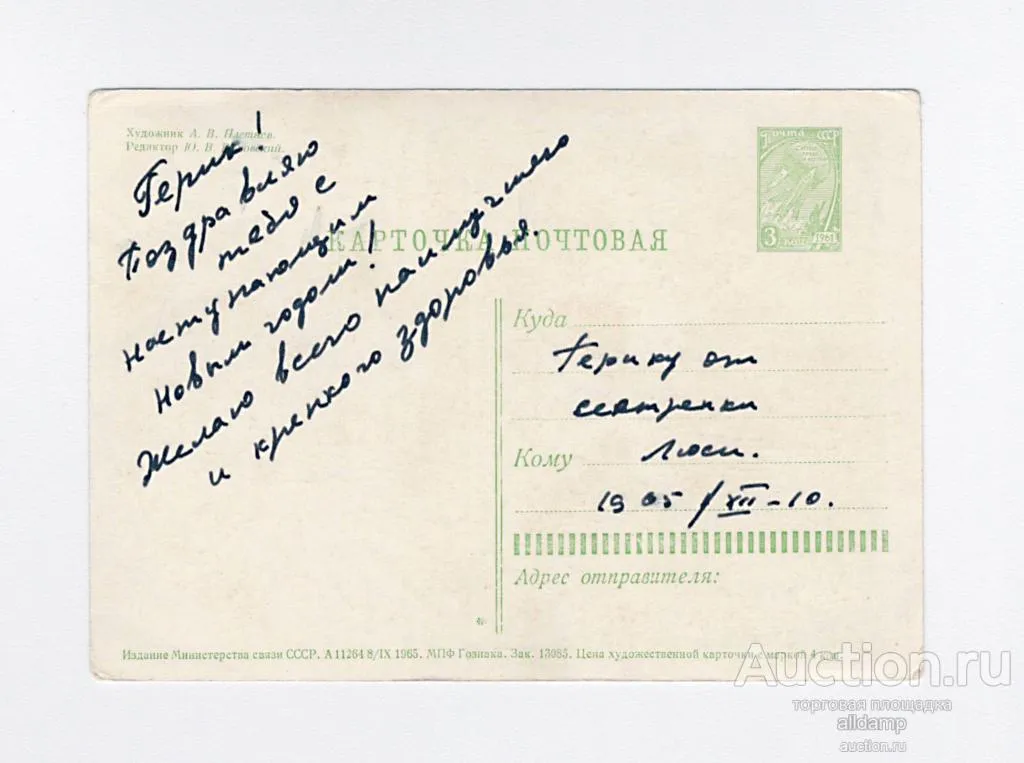 Художник А. В. Плетнев.
Редактор Ю. В.
Герик!
Поздравляю
тебя с
наступающим
Новым годом!
Желаю всего наилучшего
и крепкого здоровья.
КАРТОЧКА ПОЧТОВАЯ
ПОЧТА СССР
3 КОП 1961
Куда
Герику от
сестренки
Кому Люси.
1965/XII-10.
Адрес отправителя:
Издание Министерства связи СССР. А 11264 8/IX 1965. МПФ Гознака. Зак. 13085. Цена художественной карточки с маркой 4 коп.
Auction.ru
торговая площадка
alldamp
auction.ru